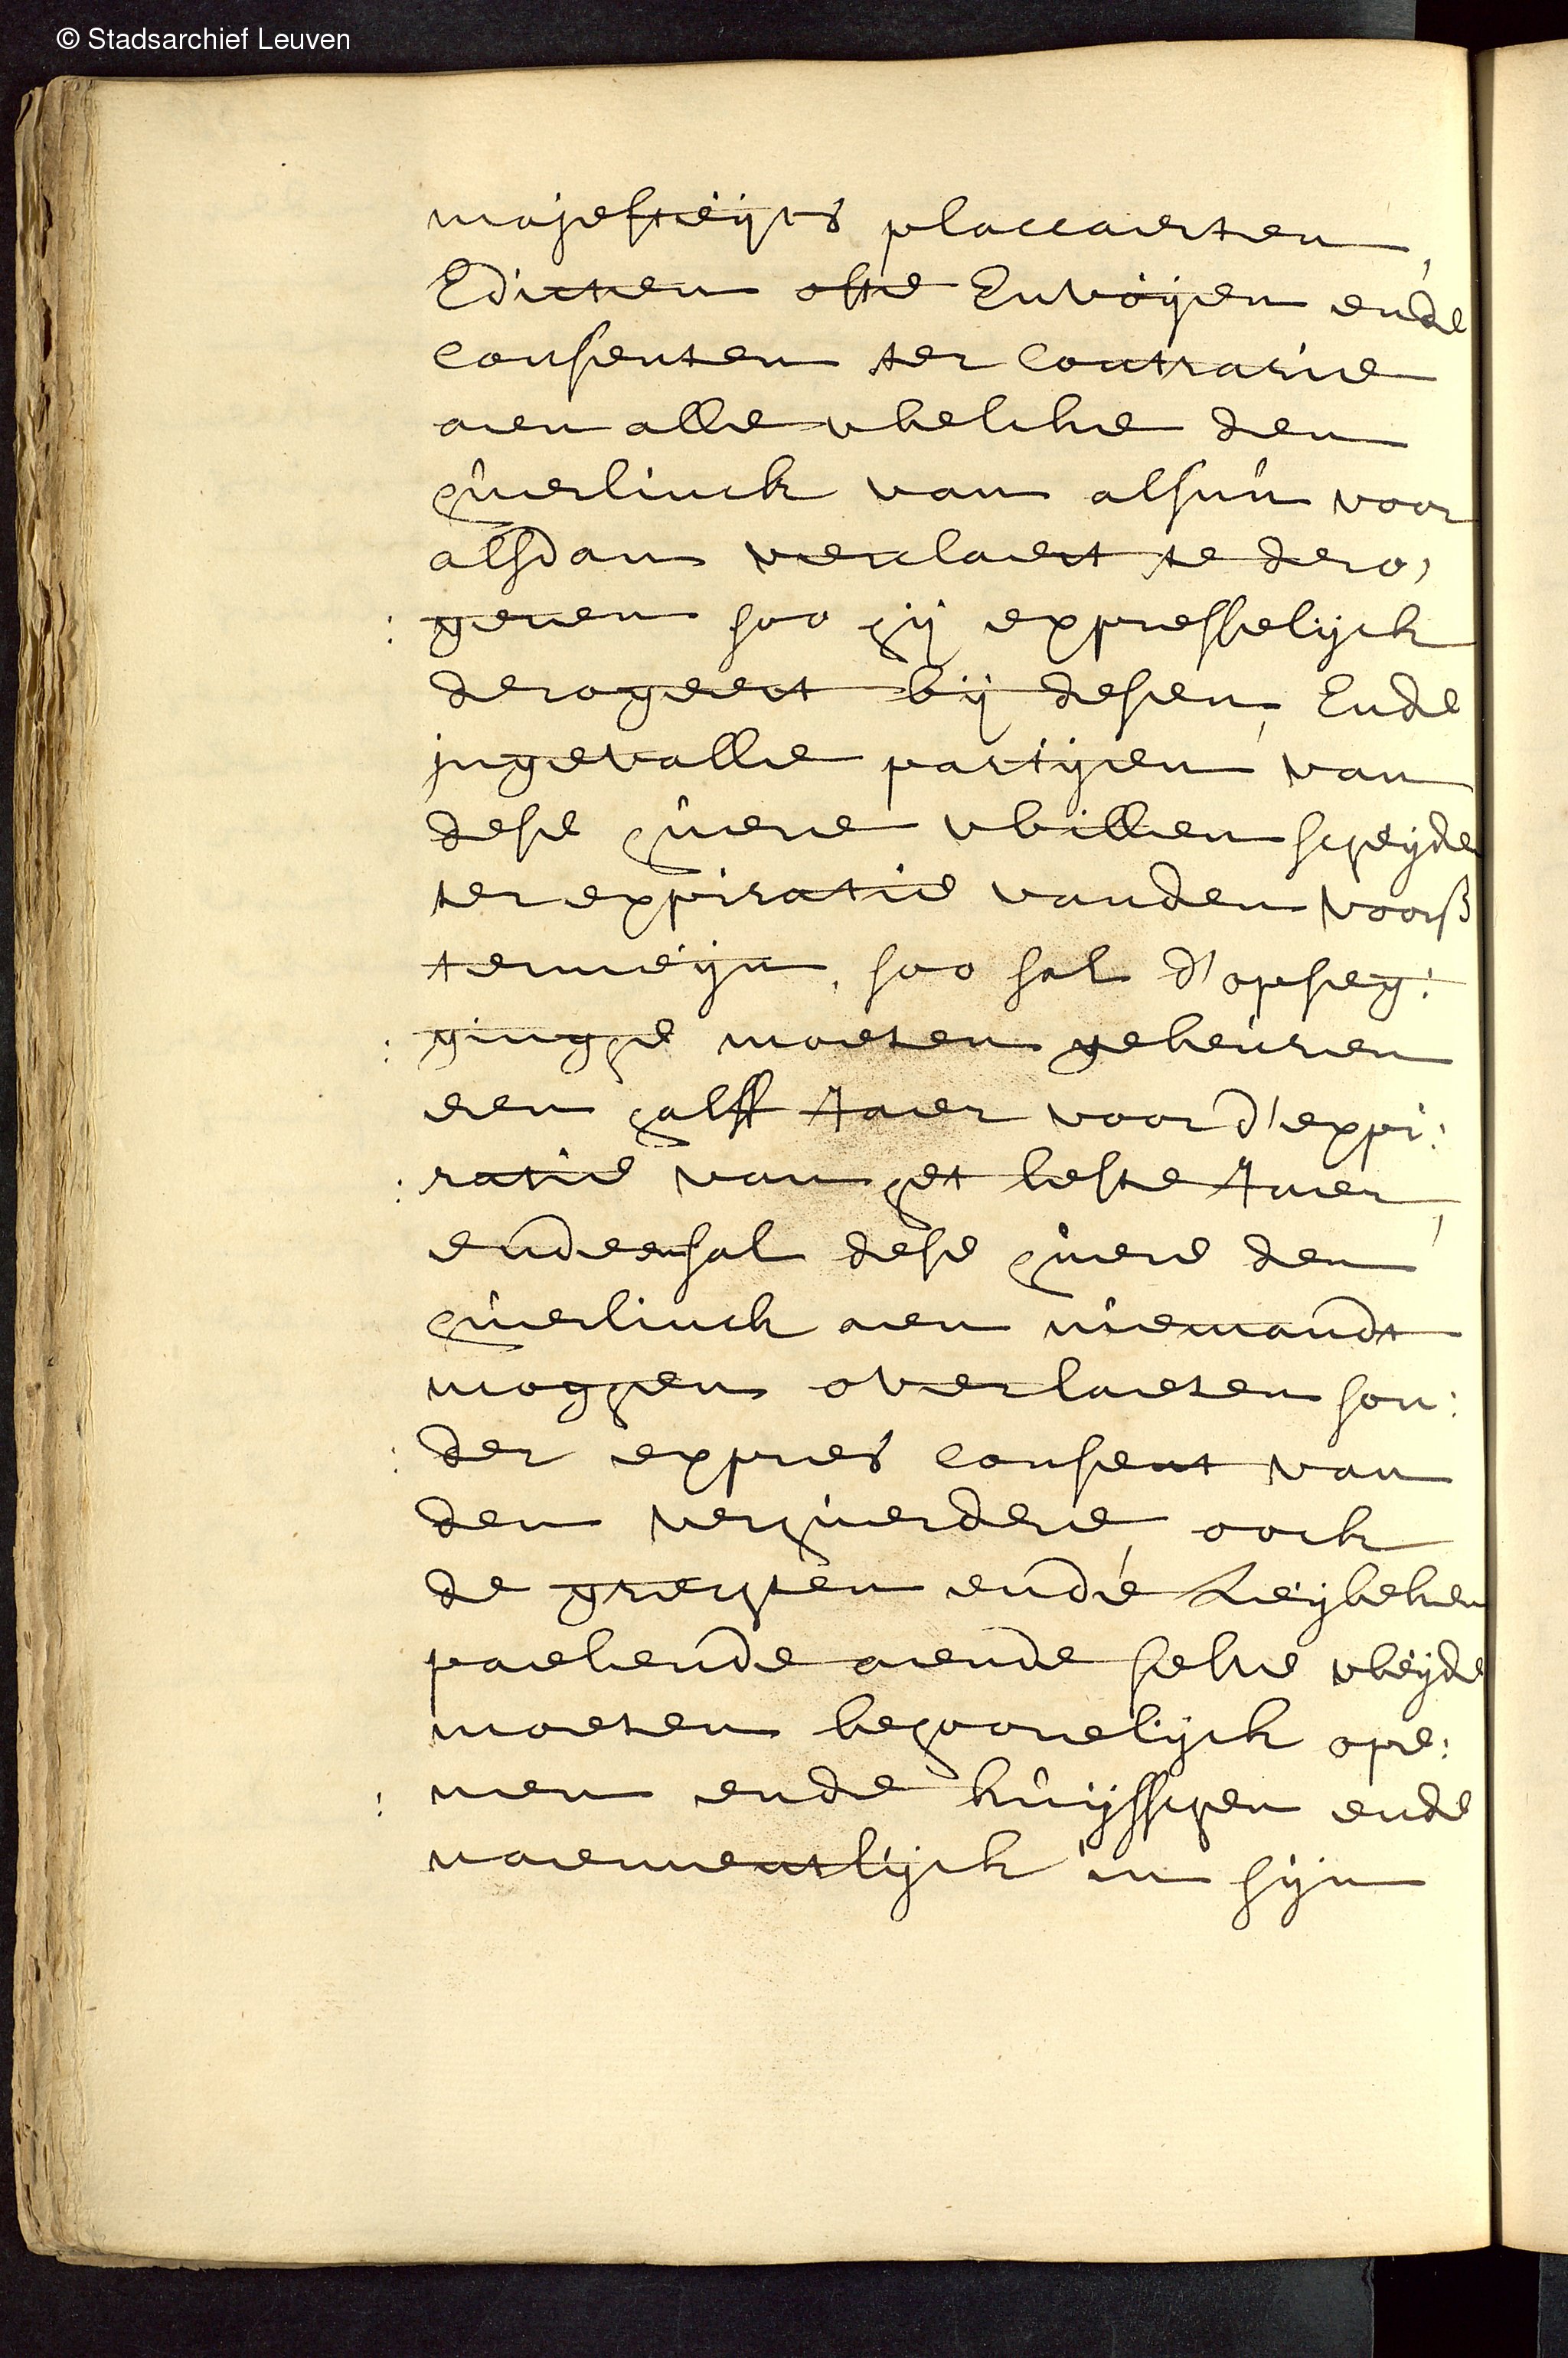 © Stadsarchief Leuven
majesteijts placcaerten,
Edicten ofte Envoijen ende
consenten ter contrarie
aen alle welcke den
huerlinck van alsnu voor
alsdan verclaert te dero,
: geren soo hij expresselijck
derogeert bij desen, Ende
jngevalle partijen van
dese huere willen scheijden
ter expiratie vanden voors
termeijn, soo sal d'opseg:
: ginghe moeten gebeuren
een halff Jaer voor d'expi:
: ratie van het leste Jaer,
ende en sal dese huere den
huerlinck aen niemandt
mogen overlaeten son:
: der expres consent van
den verhuerdere, oock
de grechten ende Leybeken
paelende aende selve weijde
moeten behoorelijck ope:
: nen ende kuijsschen ende
naementlijck in sijn